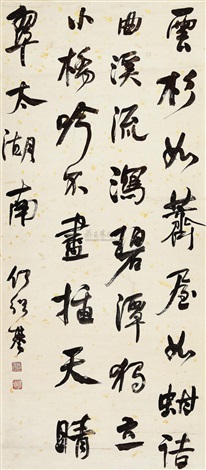 雲杉如薺屋如蚶詰
曲溪流瀉碧潭獨立
小橋吟不盡插天晴
翠太湖南
何紹基